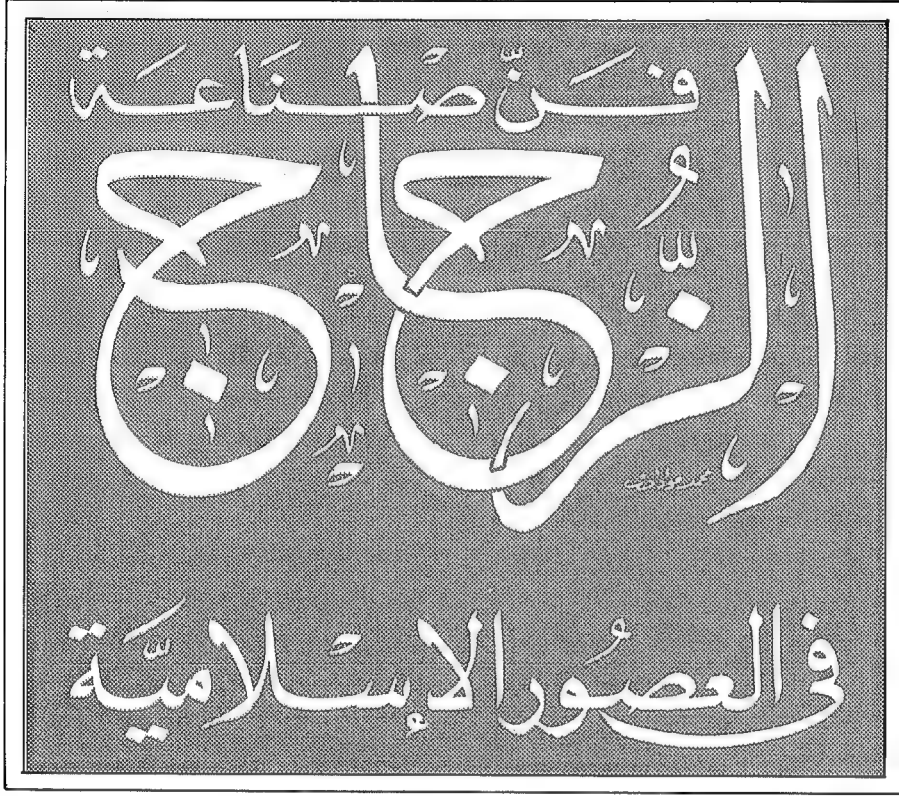 فَنّ صْنَاعَة
الزُّجَاج
فى العصُور الإسْلاميَّة